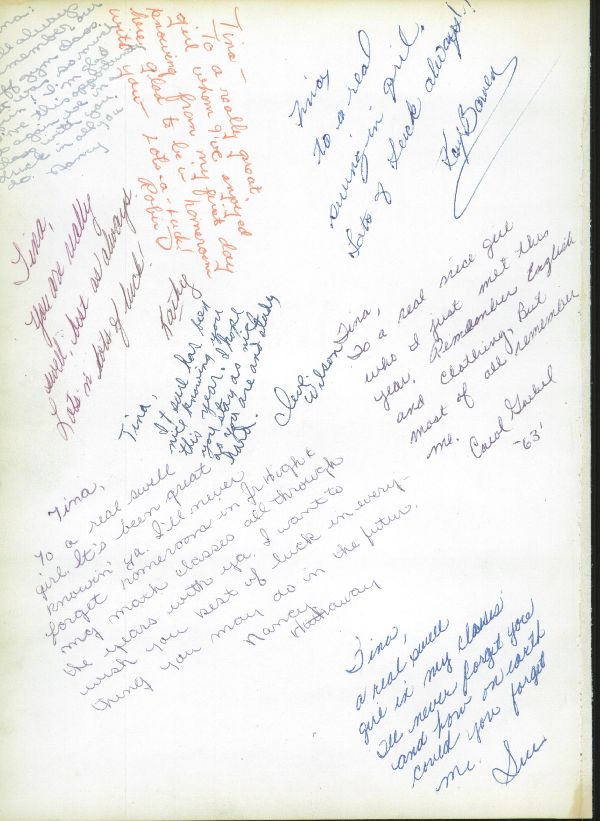 Tina:
remember our
gym class.
so much
this
Nancy
Tina—
To a really great,
girl whom I've enjoyed
knowing from my first day
here, glad to be in homeroom
with you. Lots-a-luck!
Robin
Tina,
To a real
swing-in girl.
Lots of luck always!!
Kay Bowen
Tina,
you are really
swell, but as always
Lots n lots of luck.
Kathy
Tina,
It sure has been
nice knowing you
this year. I hope
you stay as nice
as you are and study
hard.
Wilson
Tina,
To a real nice girl
who I just met this
year. Remember English
and clothing, But
most of all remember
me.
Carol
-63'
Tina,
To a real swell
girl. It's been great
knowin' ya. I'll never
forget homeroom in Jr High &
my math classes all through
the years with ya. I want to
wish you best of luck in every-
thing you may do in the futur.
Nancy
Hathaway
Tina,
a real swell
girl in my classes
I'll never forget you
and how on earth
could you forget
me.
Sue